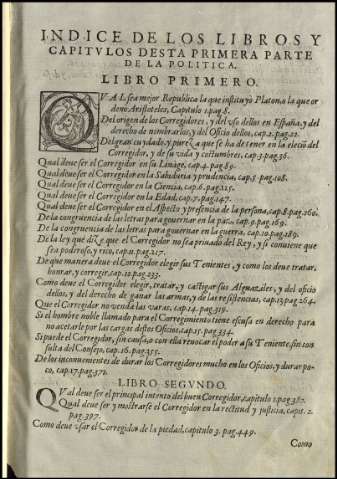 INDICE DE LOS LIBROS Y
CAPITVLOS DESTA PRIMERA PARTE
DE LA POLITICA.
LIBRO PRIMERO.
QVAL sea mejor Republica la que instituyò Platon, ò la que or
denò Aristoteles, Capitulo 1. pag. 8.
Del origen de los Corregidores, y del vso dellos en España, y del
derecho de nombrarlos, y del Oficio dellos, cap. 2. pag. 22.
Del gran cuydado, y pureza que se ha de tener en la eleciõ del
Corregidor, y de su vida y costumbres, cap. 3. pag. 36.
Qual deue ser el Corregidor en su Linage, cap. 4. pag. 89.
Qual deue ser el Corregidor en la Sabiduria y prudencia, cap. 5. pag. 108.
Qual deue ser el Corregidor en la Ciencia, cap. 6. pag. 125.
Qual deue ser el Corregidor en la Edad, cap. 7. pag. 147.
Qual deue ser el Corregidor en el Aspecto y presencia de la persona, cap. 8. pag. 160.
De la congruencia de las letras para gouernar en la paz, cap. 9. pag. 169.
De la congruencia de las letras para gouernar en la guerra, cap. 10. pag. 189.
De la ley que dize que el Corregidor no sea priuado del Rey, y si conuiene que
sea poderoso, y rico, cap. 11. pag. 217.
De que manera deue el Corregidor elegir sus Tenientes, y como los deue tratar,
honrar, y corregir, cap. 12. pag. 233.
Como deue el Corregidor elegir, tratar, y castigar sus Alguaziles, y del oficio
dellos, y del derecho de ganar las armas, y de las resistencias, cap. 13. pag. 264.
Que el Corregidor no venda las varas, cap. 14. pag. 319.
Si el hombre noble llamado para el Corregimiento tiene escusa en derecho para
no acetarle por las cargas destos Oficios, cap. 15. pag. 334.
Si puede el Corregidor, sin causa, o con ella reuocar el poder a su Teniente, sin con
sulta del Consejo, cap. 16. pag. 355.
De los inconuenientes de durar los Corregidores mucho en los Oficios, y durar po-
co, cap. 17. pag. 371.
LIBRO SEGVNDO.
QVal deue ser el principal intento del buen Corregidor, capitulo 1. pag. 387.
Qual deue ser y mostrarse el Corregidor en la rectitud y justicia, capit. 2.
pag. 397.
Como deue vsar el Corregidor de la piedad, capitulo 3. pag. 449.
Como